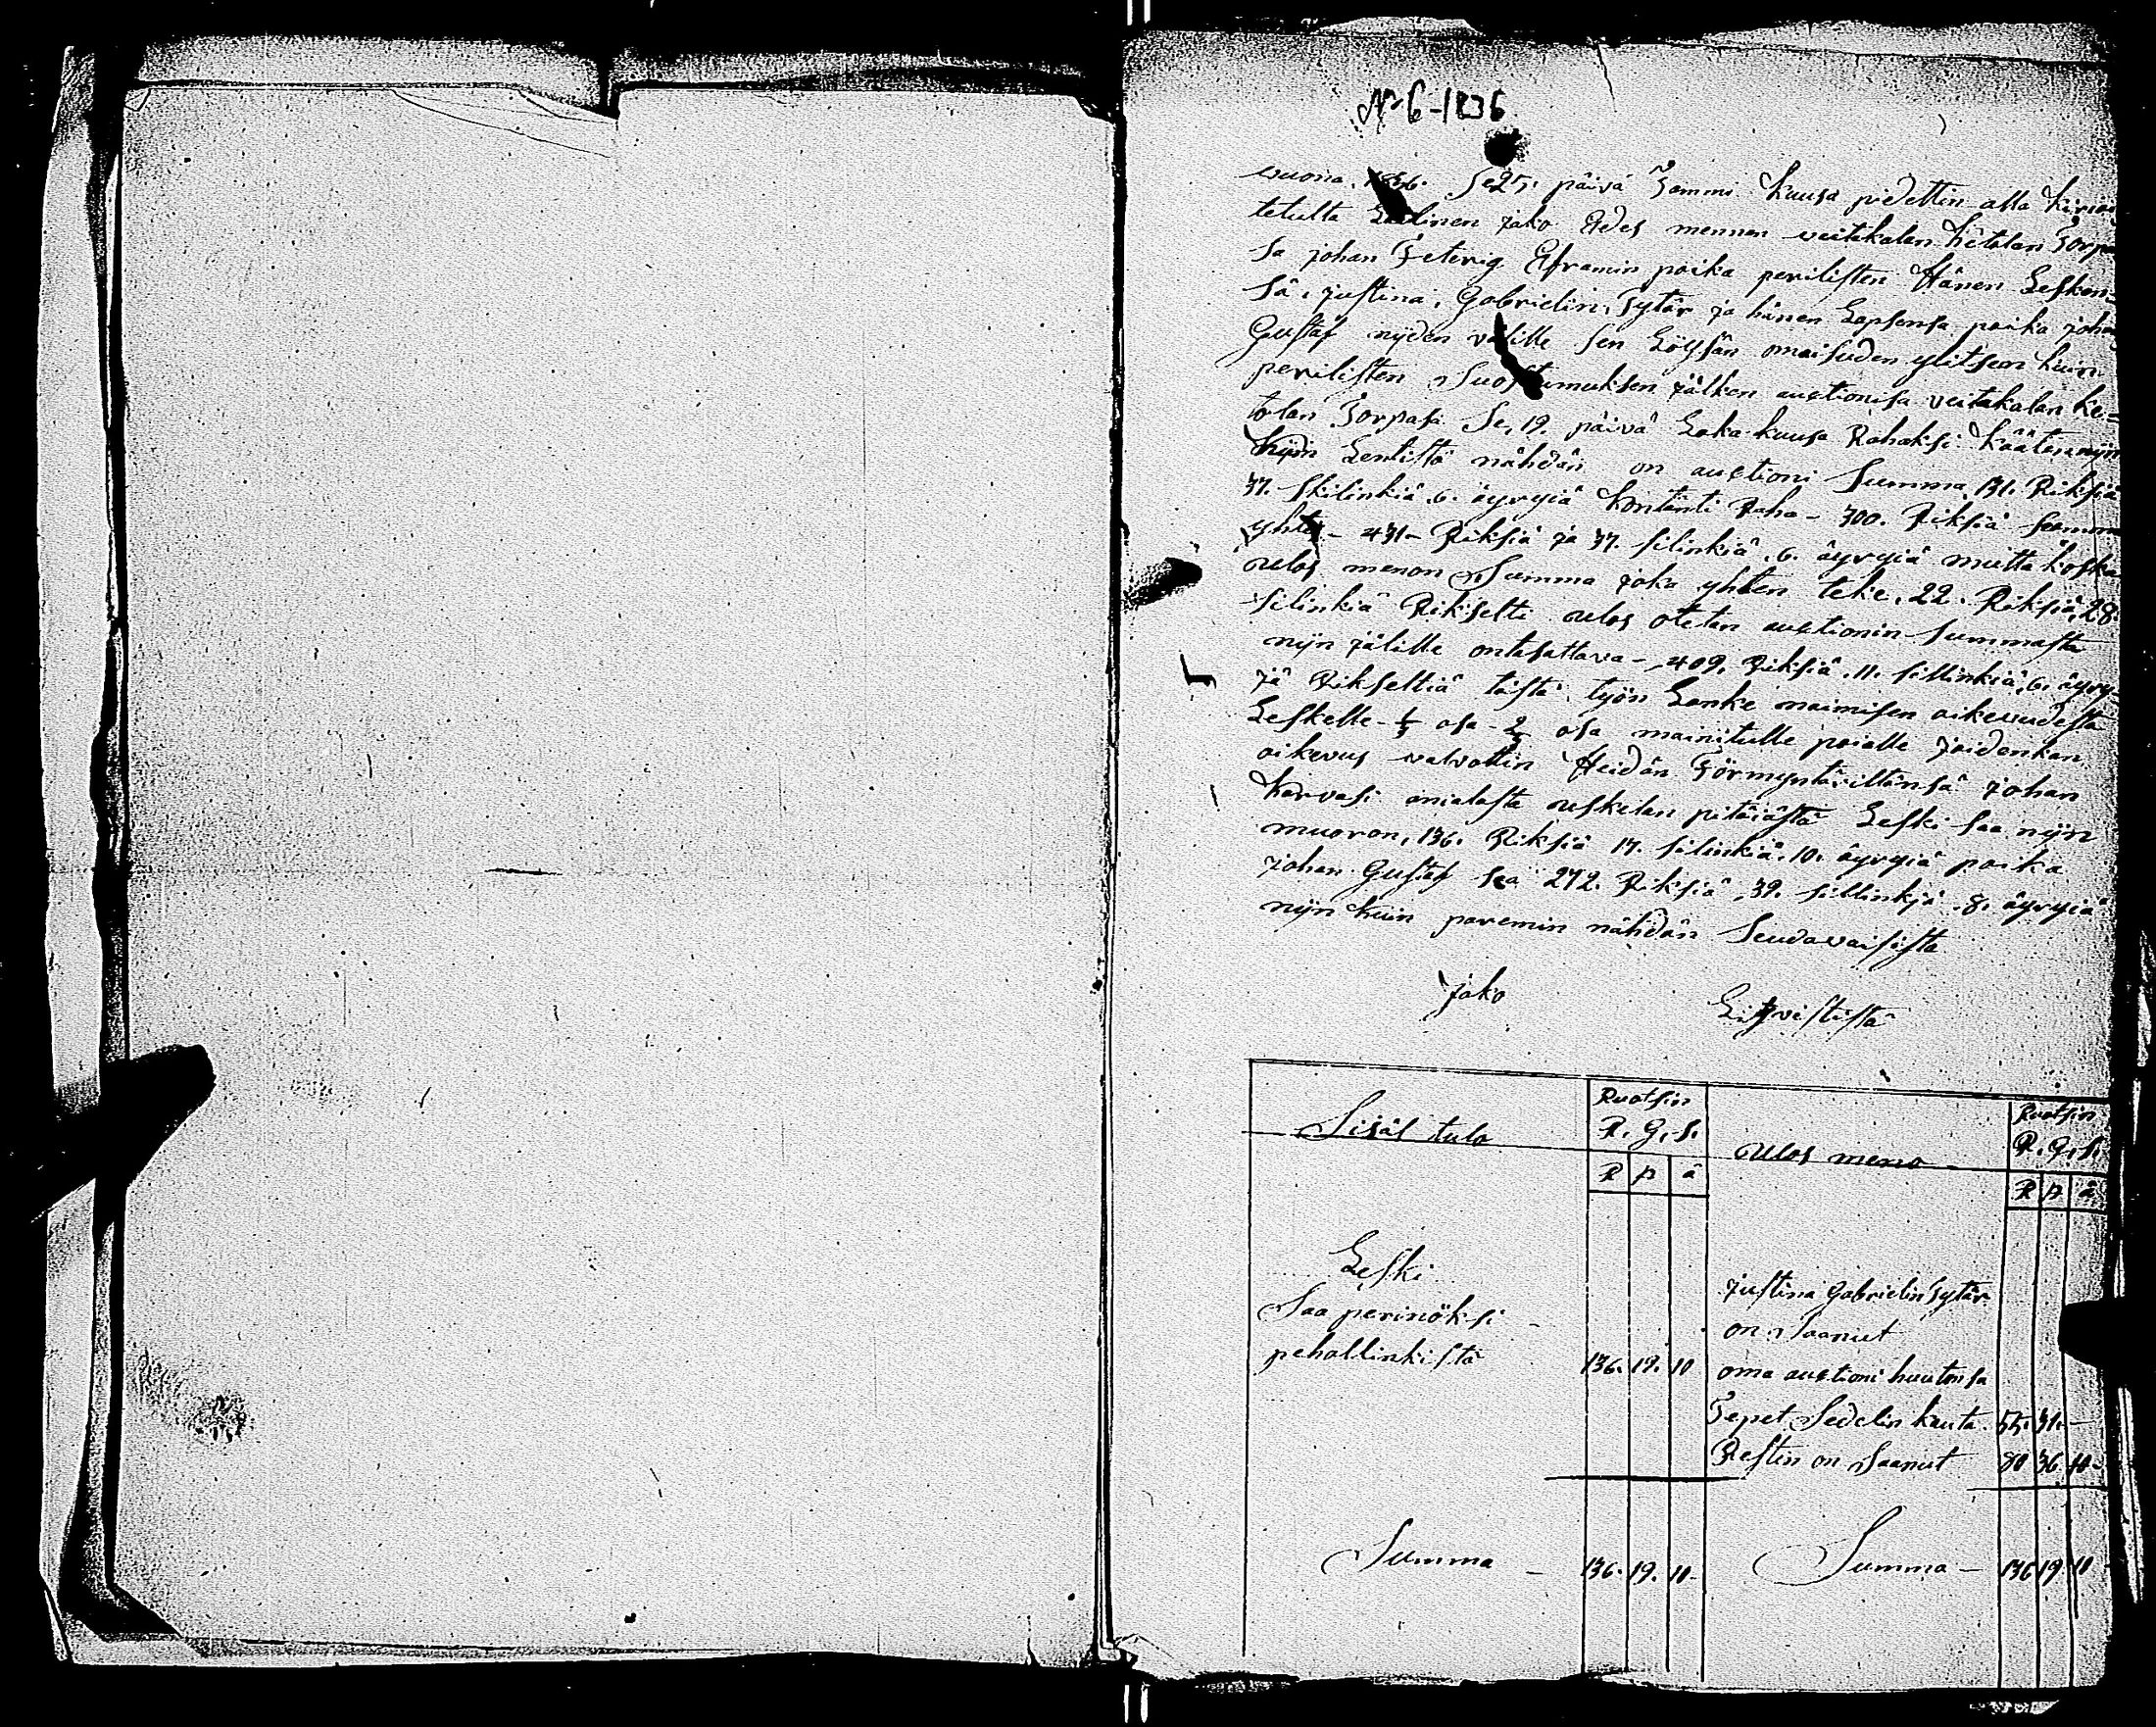 No 6-1836
wuona. 1836. Se 25. päivä Tammi kuusa pidettin alla kirjoi
tetulta Laillinen jako Edes mennen veitakalan ketolan Torpa
sa johan Feterig Eframin poika perilisten Hänen Lesken=
sä, justina, Gabrielin, Tytär ja hänen Lapsensa poika johan
Gustaf nijden välille sen Löysän omaisuden ylitsen kuin
perilisten Suostumuksen jälken auctionisa veitakalan ke=
tolan Torpasa Se, 19. päivä Loka-kuusa Rahaksi käätin nijn
kuin Lentistä nähdän on auctioni Summa, 131. Riksiä
37. skilinkiä .6. äyryiä kontanti Raha - 300. Riksiä summa
yhte - 431 - Riksiä ja 37. silinkiä .6. äyryiä mutta koska
ulos menon Summa joka yhten teke. 22. Riksiä, 28.
silinkiä Rikselti ulos otetan auctionin Summasta
nijn jälille ontasattava - 409. Riksiä .11. sillinkiä, 6. äyry-
jä Rikseltiä tästä työn Lanke naimisen oikeudesta
Leskelle - 1/3 osa - 2/3 osa mainitulle poialle joidenkan
oikeus valvottin Heidän Förmyntärittänsä johan
karvasi anialasta uskelan pitäjästä Leski saa nijn
muoron, 136. Riksiä 17. silinkiä. 10. äyryiä poika
johan Gustaf saa 272. Riksiä, 39. sillinkjä .8. äyryiä
nijn kuin paremin nähdän Seudavaisista
jako Liqvististä
Sisäl tulo Ruotsin R. G. S. ulos meno - Ruotsin R. G. S.
R p ä R p ä
Leski justina Gabrielin Tytär
Saa perinöksi - on Saanut
pehallinkista 136. 19. 10 oma auctioni huutonsa
Tepet Sedelin kauta. 55. 31. -
Restin on Saanut 80 36 10 -
Summa - 136. 19. 10 - Summa - 136 19 10